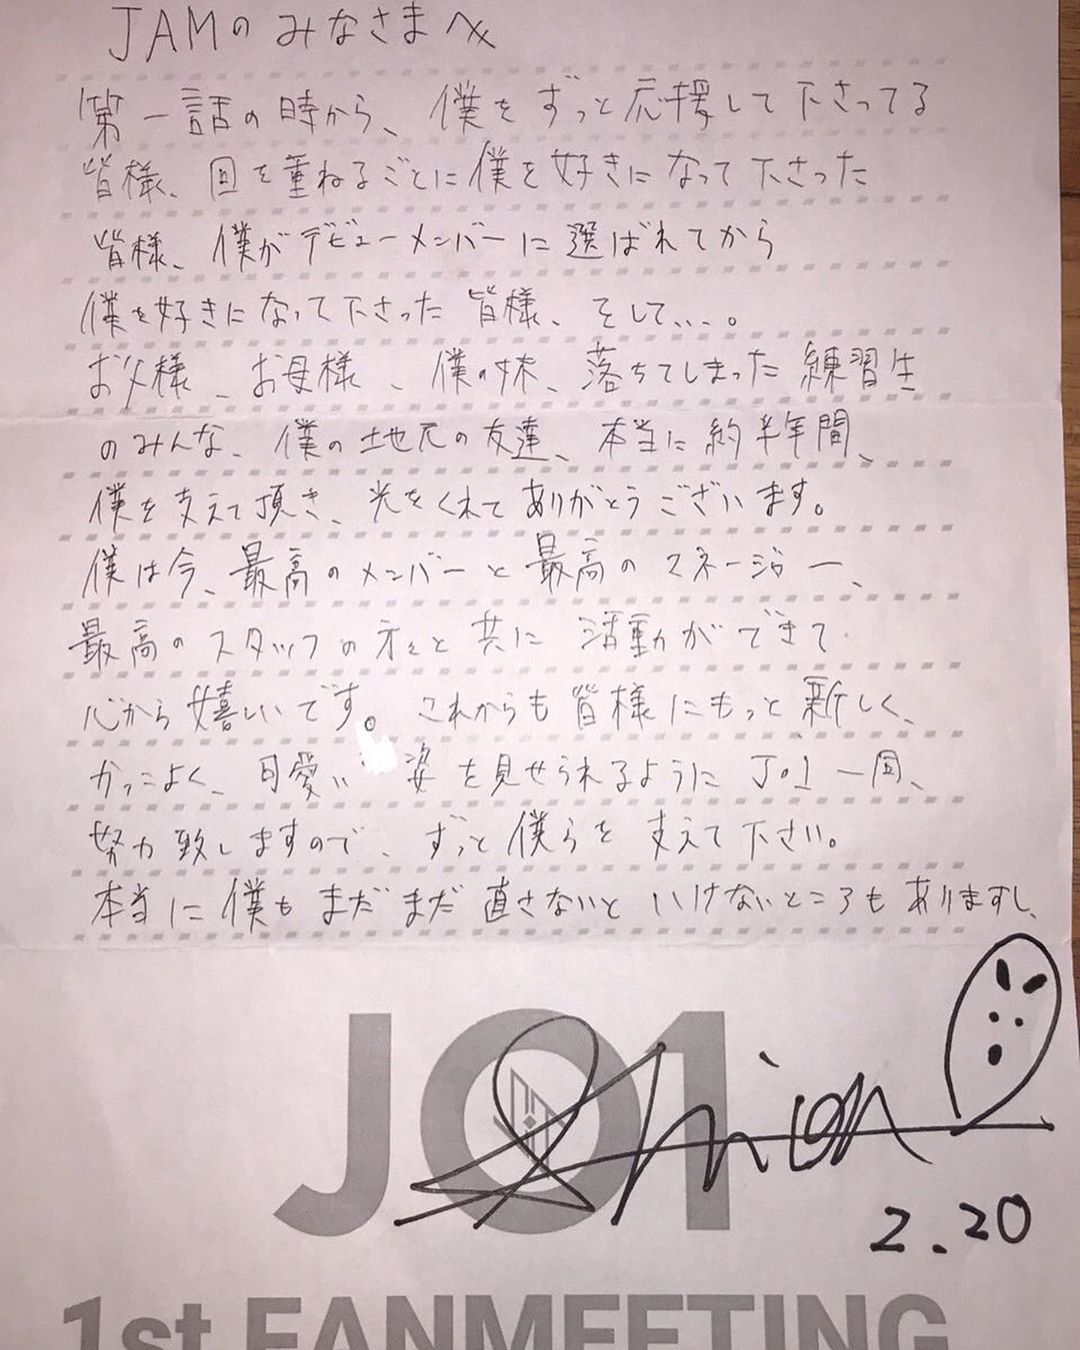 JAMのみなさまへ
第一話の時から、僕をずっと応援して下さってる
皆様、回を重ねるごとに僕を好きになって下さった
皆様、僕がデビューメンバーに選ばれてから
僕を好きになって下さった皆様、そして、、、。
お父様、お母様、僕の妹、落ちてしまった練習生
のみんな、僕の地元の友達、本当に約半年間、
僕を支えて頂き、光をくれてありがとうございます。
僕は今、最高のメンバーと最高のマネージャー、
最高のスタッフの方々と共に活動ができて
心から嬉しいです。これからも皆様にもっと新しく、
かっこよく、可愛い姿を見せられるようにJO1一同、
努力致しますので、ずっと僕らを支えて下さい。
本当に僕もまだまだ直さないといけないところもありますし、
JO1
Shion
2.20
1st FANMEETING